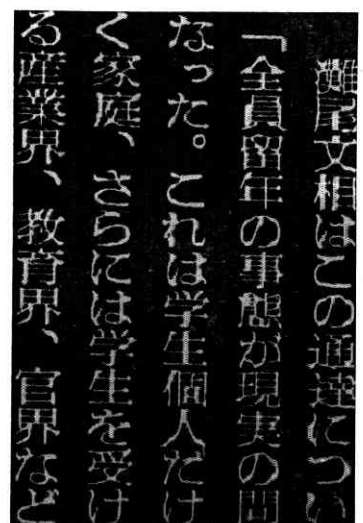 灘尾文相はこの通達につい
「全員留年の事態が現実の問
なった。これは学生個人だけ
く家庭、さらには学生を受け
る産業界、教育界、官界など